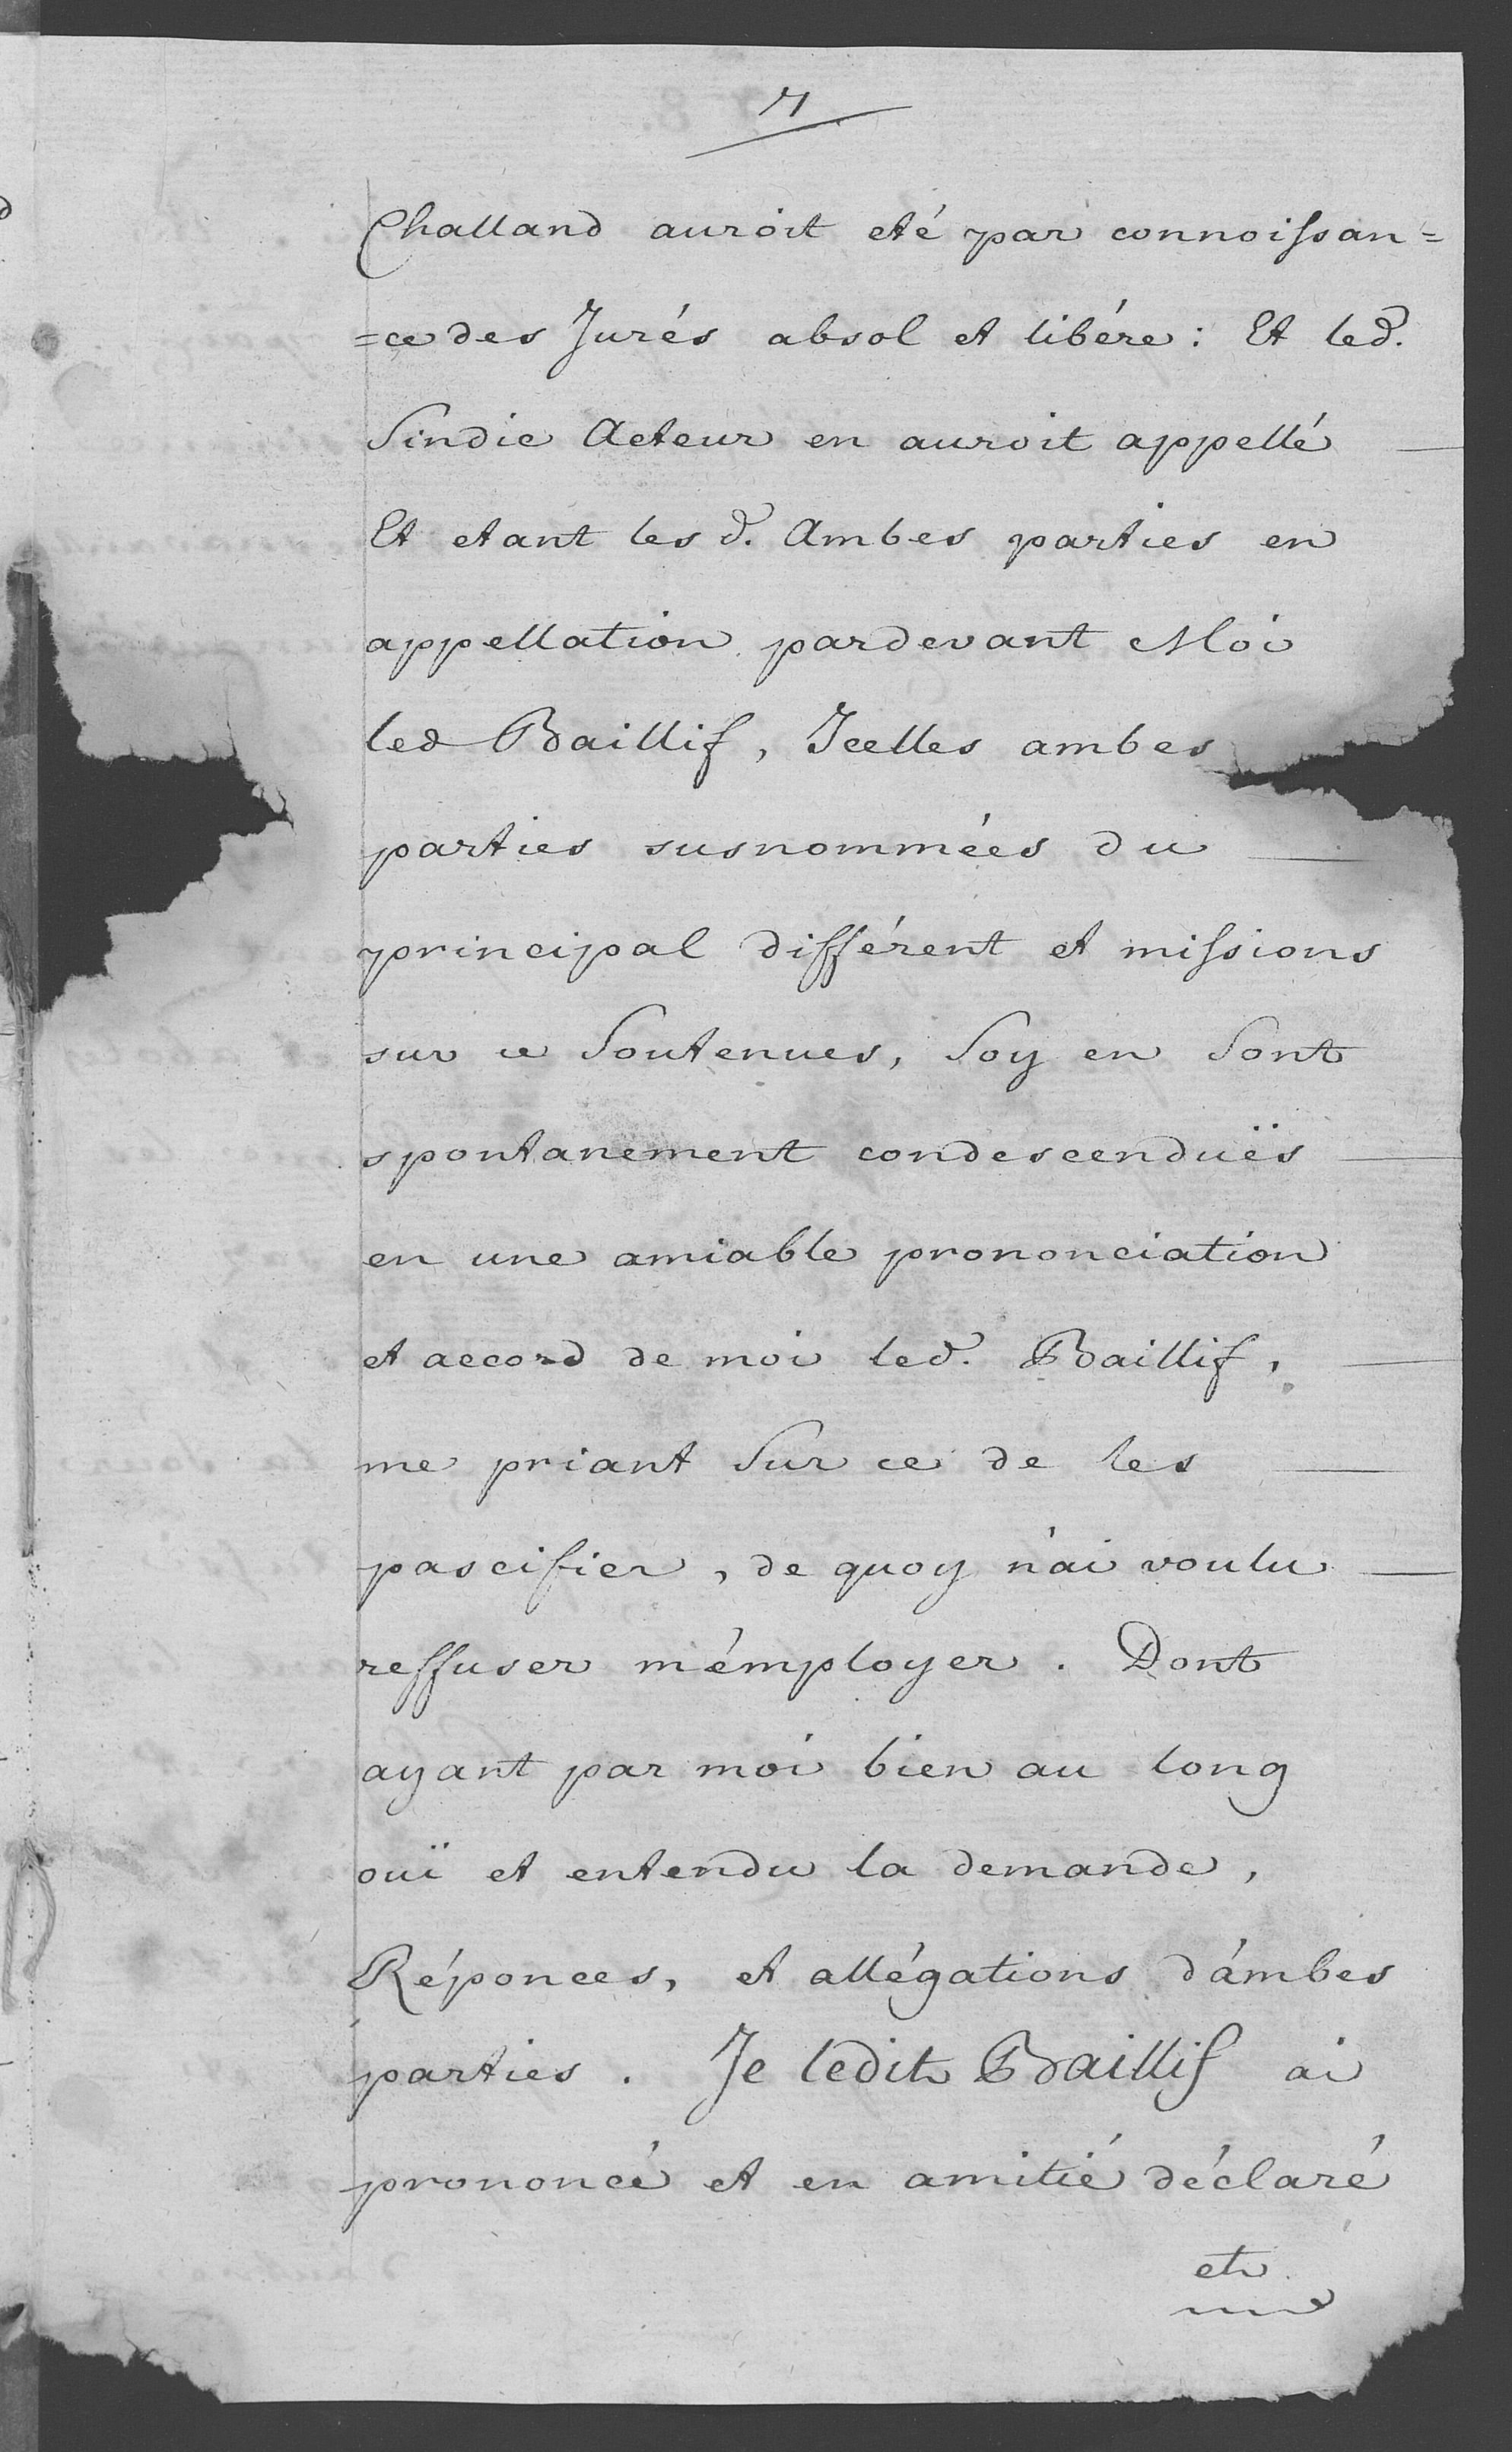 7
Challand auroit eté par connoissan=
=ce des Jurés absol et libére : Et led.
Sindic Acteur en auroit appellé
Et etant les d. Ambes parties en
appellation pardevant Moi
led Baillif, Icelles ambes
parties susnommées du
principal différent et missions
sur ce Soutenues, Soy en Sont
spontanement condescenduës
en une amiable prononciation
et accord de moi led. Baillif,
me priant Sur ce de les
pascifier, de quoy n'ai voulu
reffuser m'employer. Dont
ayant par moi bien au long
ouï et entendu la demande,
Réponces, et allégations d'ambes
parties. Je ledit Baillif ai
prononcé et en amitié déclaré
et